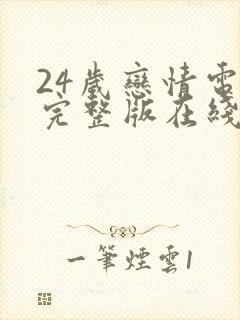 24歲戀情電
完整版在綫
一筆煙雲1